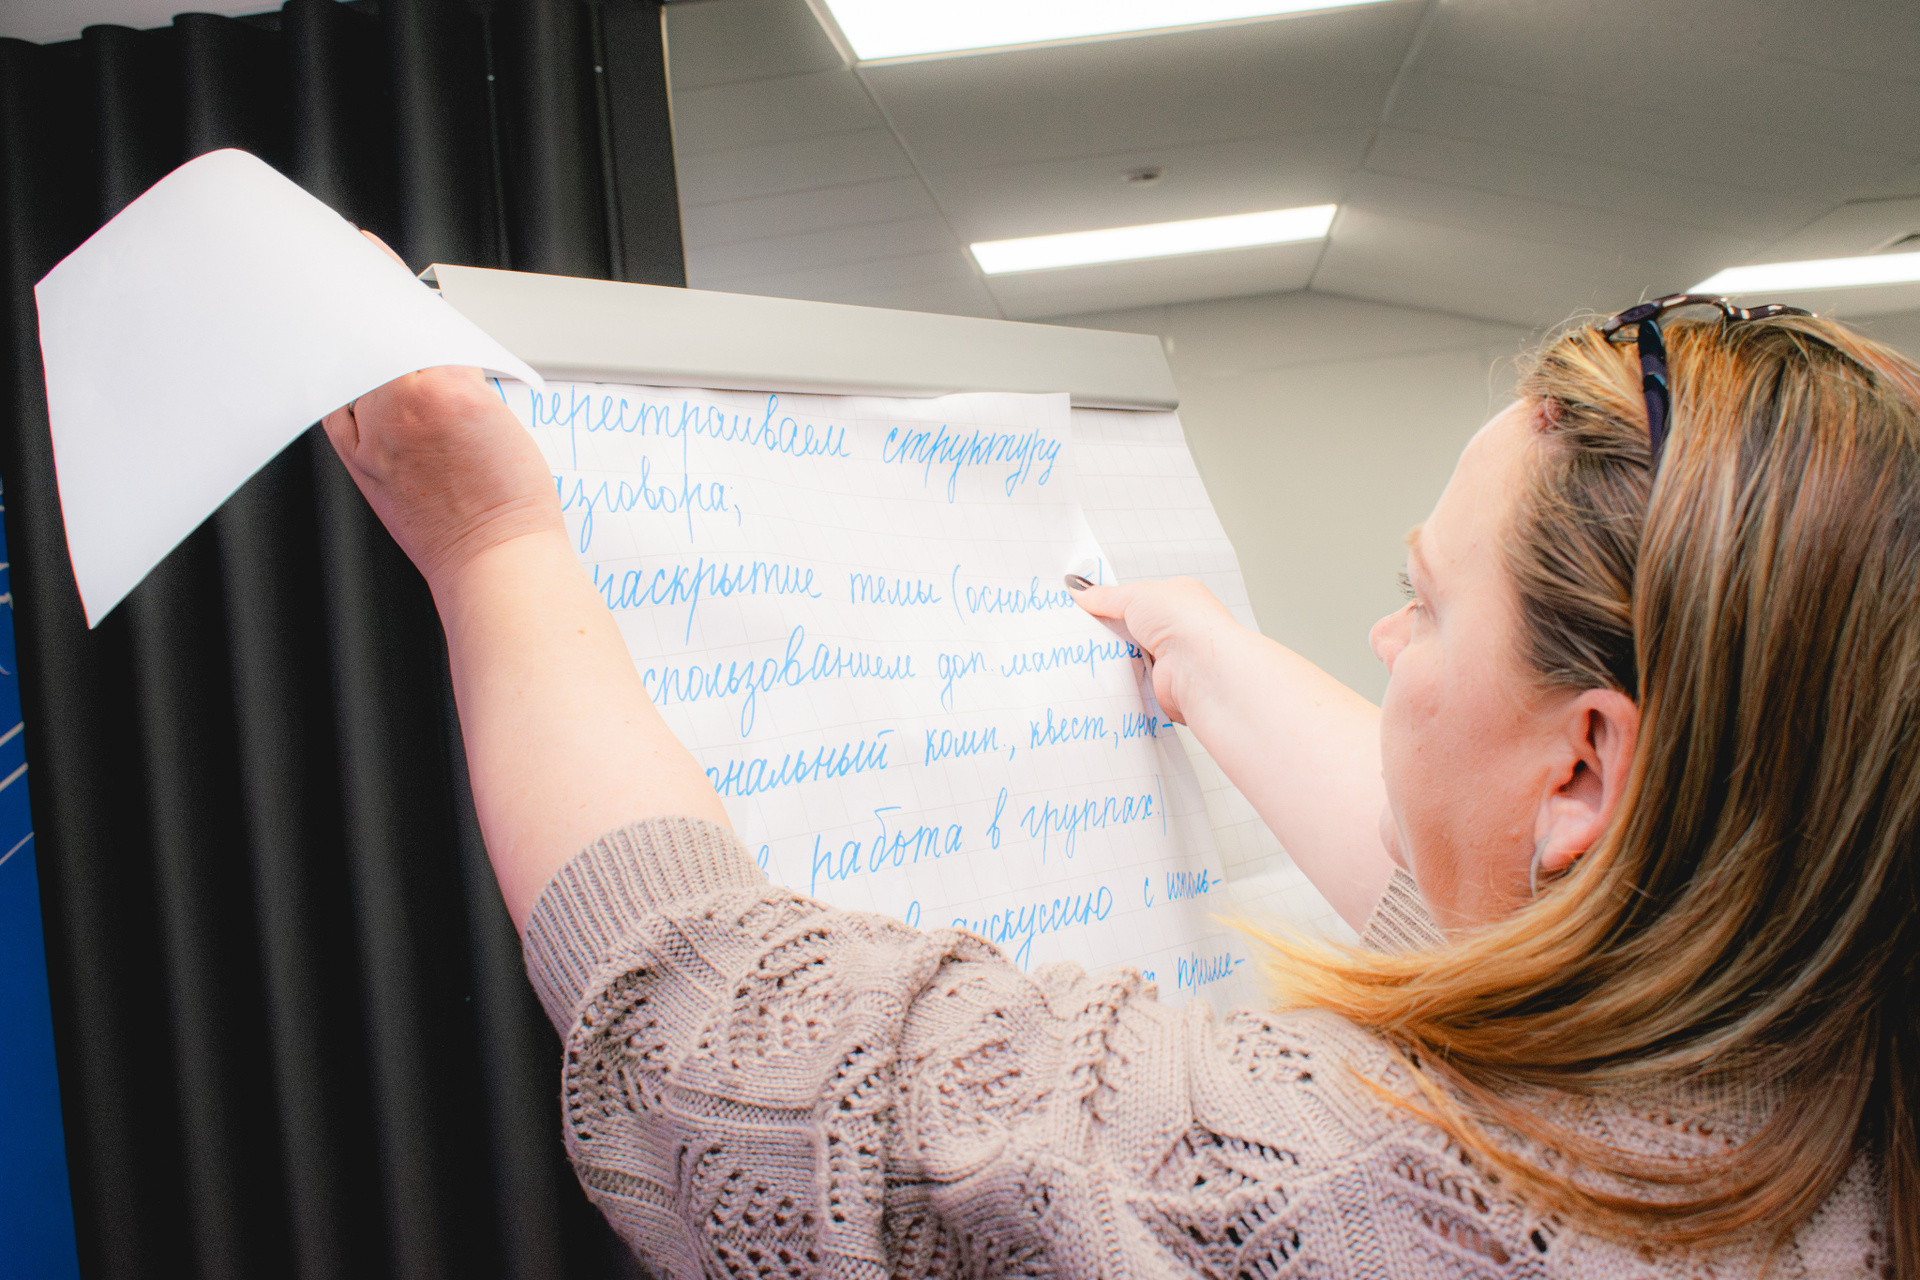 ) перестраиваем структуру
азговора;
раскрытие темы (основно
спользованием доп. матери
ональный комп., квест, инте-
в работа в группах)
в дискуссию с исполь-
приме-